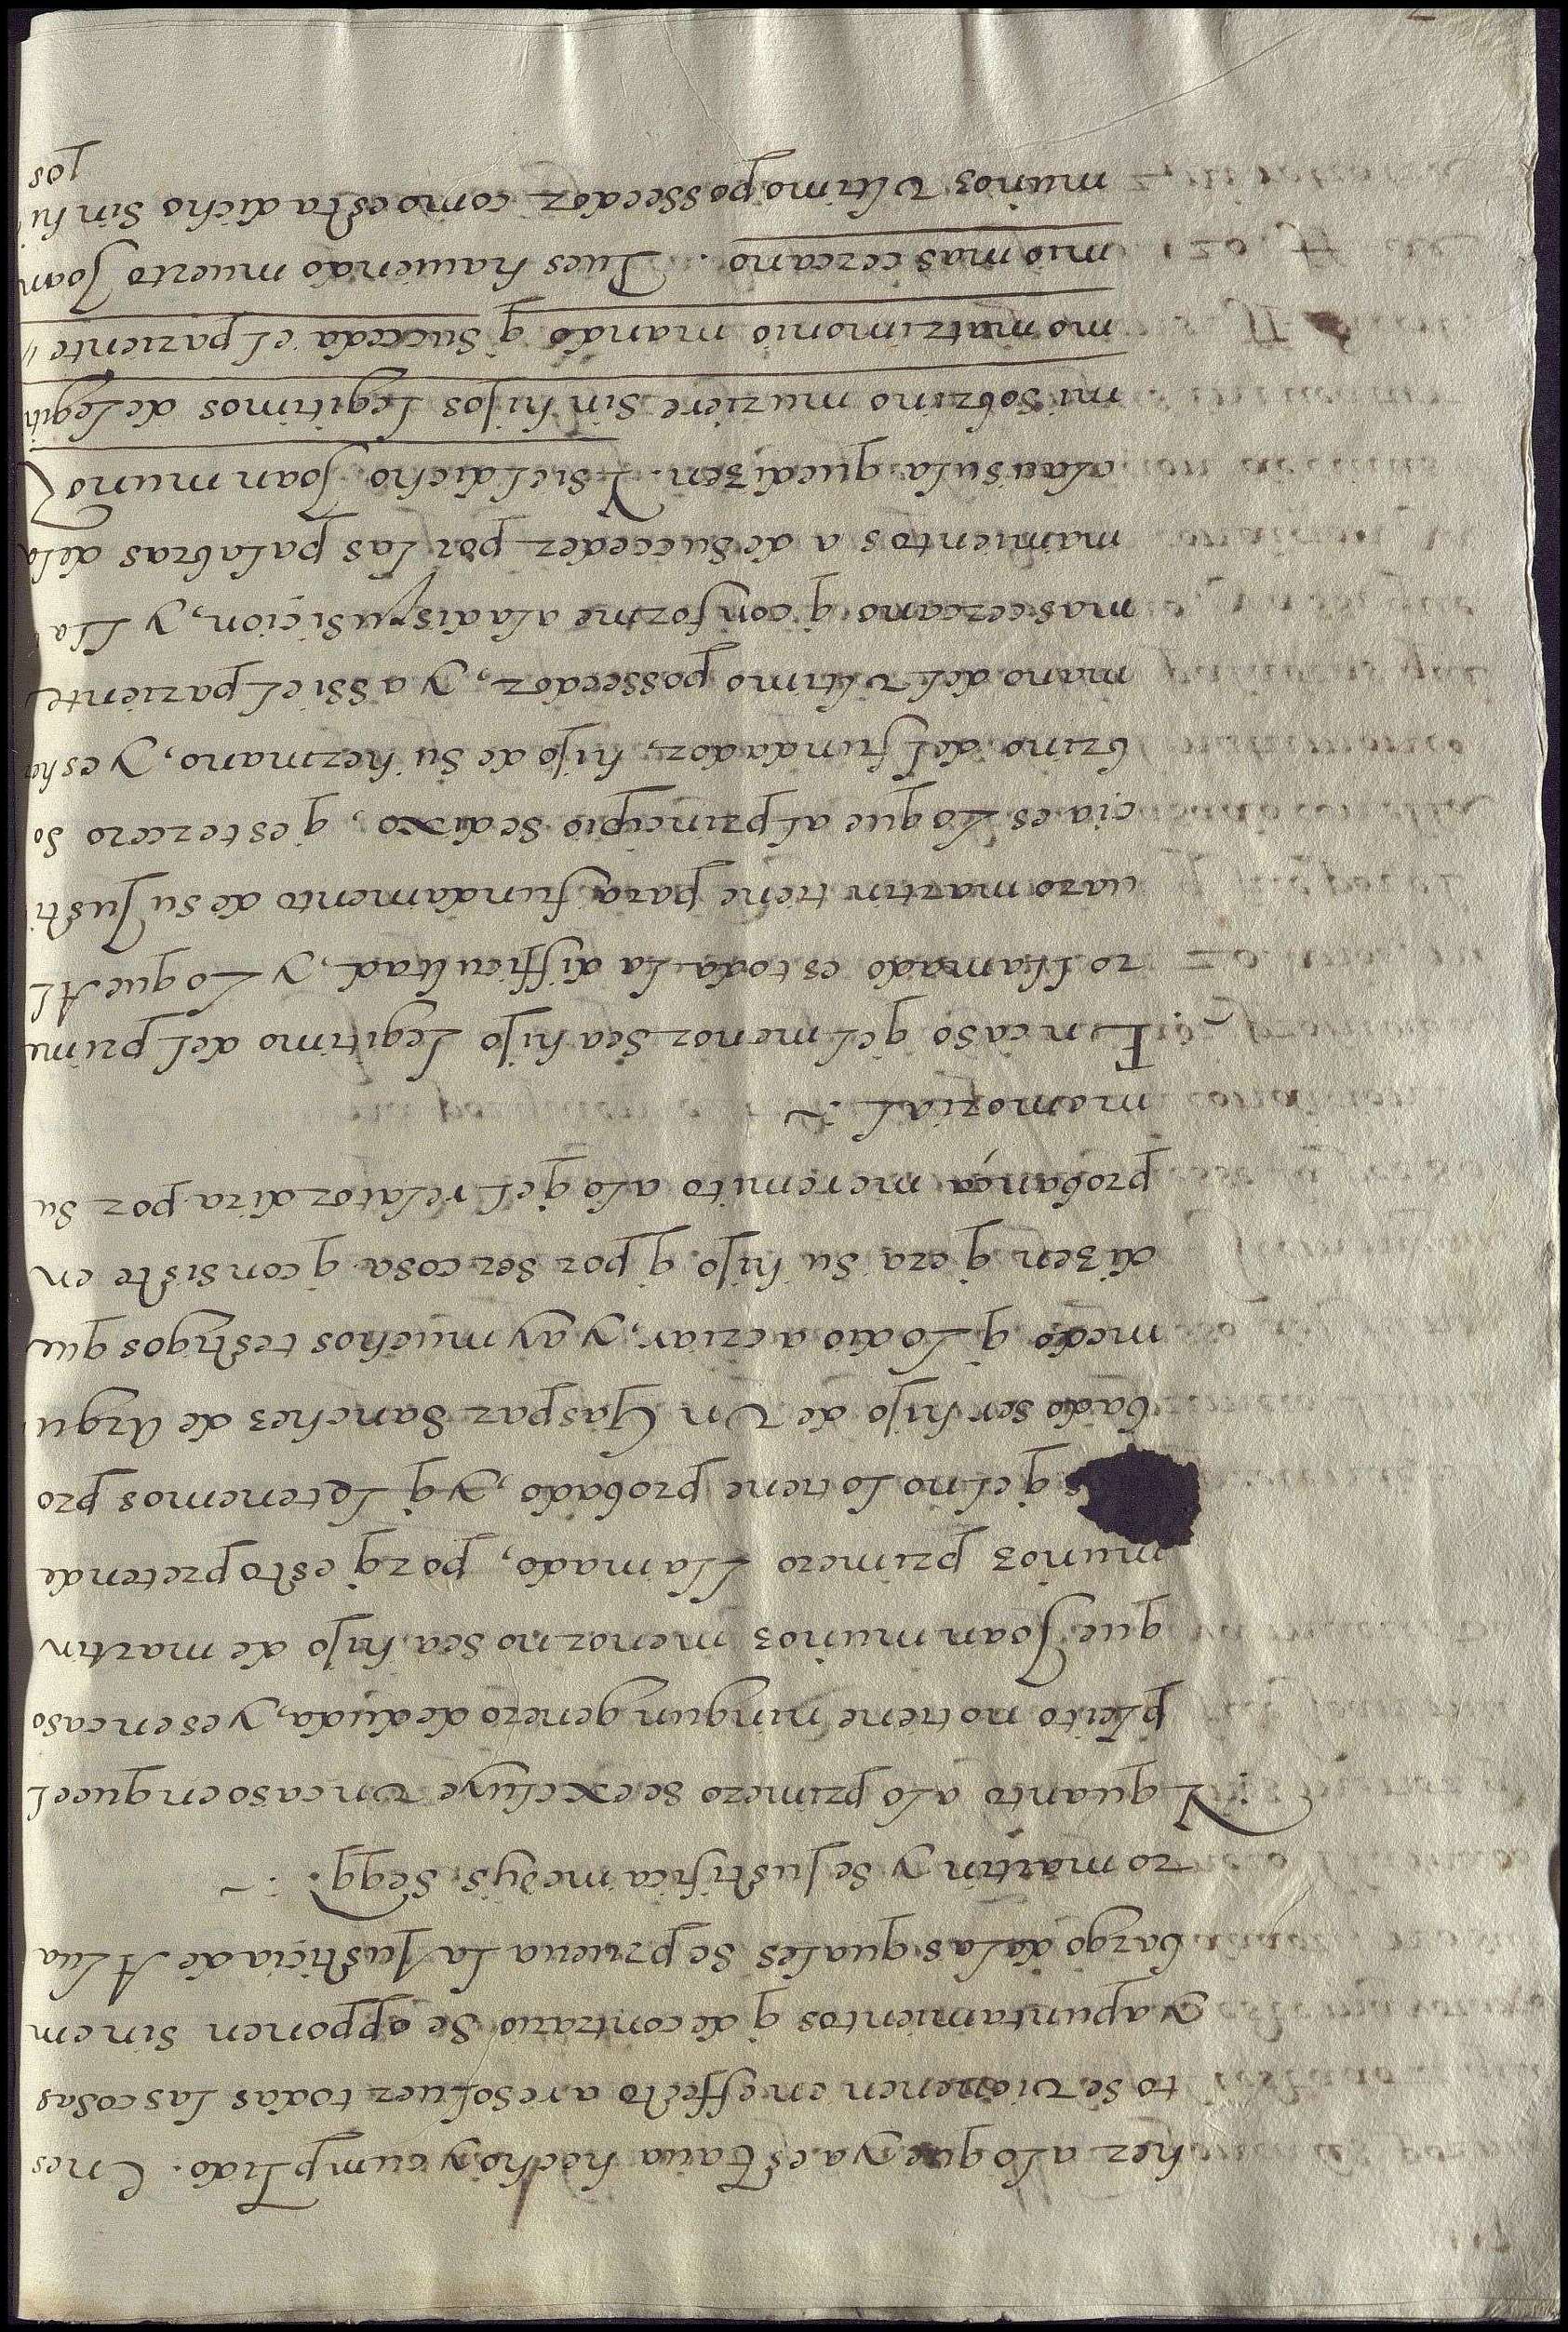 her a lo que ya estaua hecho y cumplido. En es
to se vienen en effecto a resoluer todas las cosas
y apuntamientos q̃ de contrario se opponen sin em
bargo de las quales se prueua la Justicia de Alua
ro martin y se Justifica medys seqq̃. ~
Y quanto a lo primero se excluye vn caso en que el
pleito no tiene ningun genero de duda, y es en caso
que Joan muñoz menor no sea hijo de martin
muñoz primero llamado, porq̃ esto pretende
q̃ el no lo tiene probado, y q̃ le tenemos pro
bado ser hijo de vn Gaspar Sanchez de Argu
medo q̃ lo dio a criar, y ay muchos testigos que
dizen q̃ era su hijo q̃ por ser cosa q̃ consiste en
probança me remito a lo q̃ el relator dira por su
memorial. ~
En caso q̃ el menor sea hijo legitimo del prime
ro llamado es toda la difficultad, y lo que Al
uaro martin tiene para fundamento de su Justi
cia es lo que al principio se dixo, q̃ es tercero so
brino del fundador, hijo de su hermano, y es her
mano del vltimo posseedor, y assi el pariente
mas cercano q̃ conforme a la dispusicion, y lla
mamientos a de succeder por las palabras de la
clausula que dizen. Y si el dicho Joan muñoz
mi sobrino muriere sin hijos legitimos de legiti
mo matrimonio mando q̃ succeda el pariente
mio mas cercano. Pues hauiendo muerto Joan
muñoz vltimo posseedor como esta dicho sin hi
jos